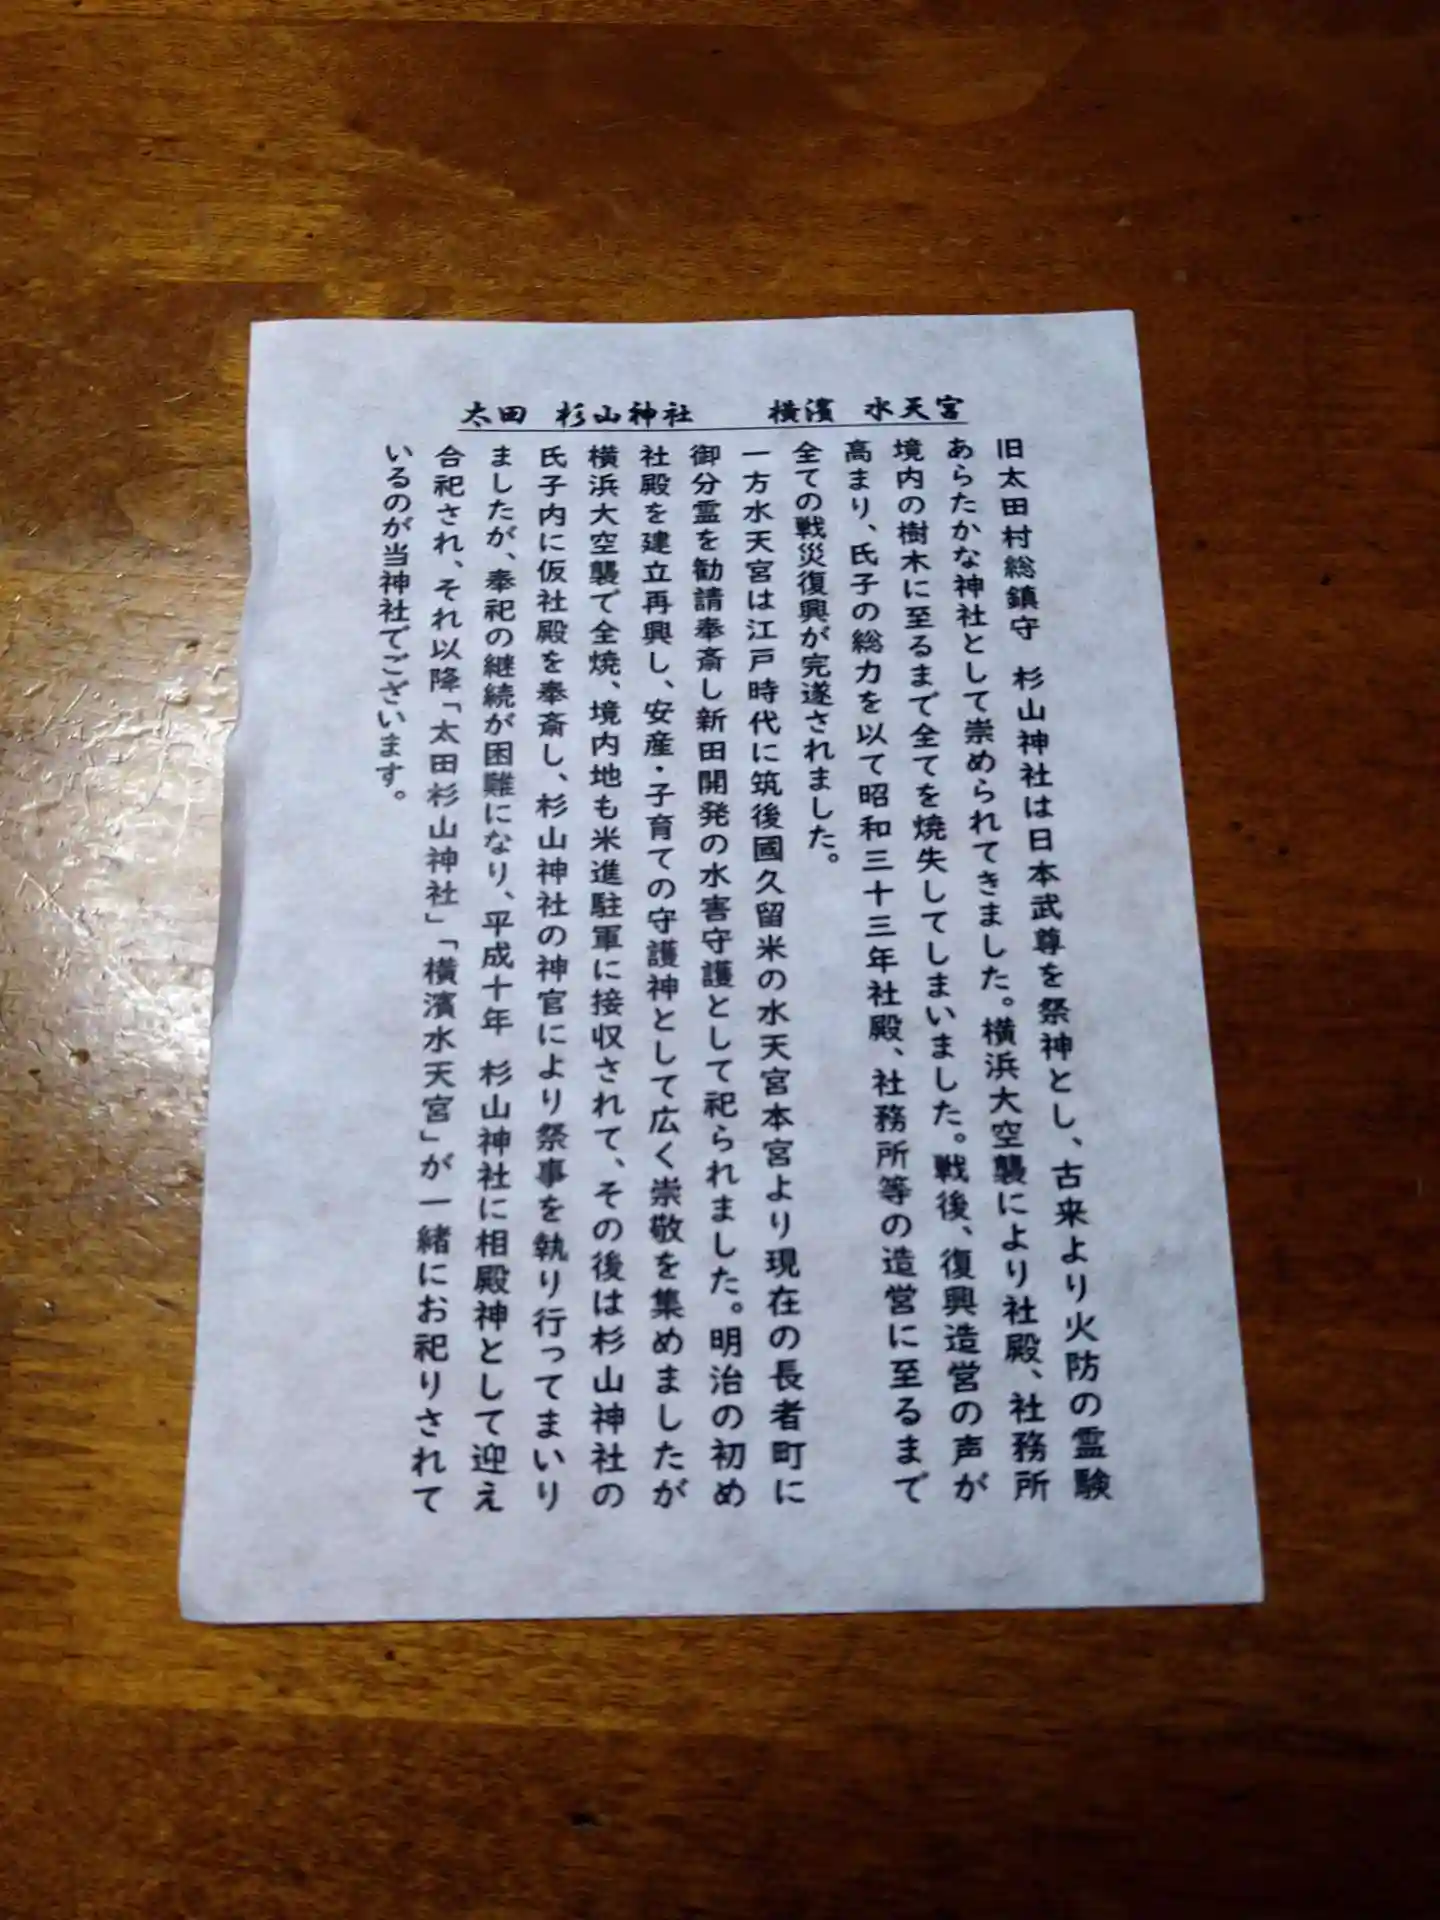 太田 杉山神社　横濱 水天宮
旧太田村総鎮守 杉山神社は日本武尊を祭神とし、古来より火防の霊験
あらたかな神社として崇められてきました。横浜大空襲により社殿、社務所
境内の樹木に至るまで全てを焼失してしまいました。戦後、復興造営の声が
高まり、氏子の総力を以て昭和三十三年社殿、社務所等の造営に至るまで
全ての戦災復興が完遂されました。
一方水天宮は江戸時代に筑後國久留米の水天宮本宮より現在の長者町に
御分霊を勧請奉斎し新田開発の水害守護として祀られました。明治の初め
社殿を建立再興し、安産・子育ての守護神として広く崇敬を集めましたが
横浜大空襲で全焼、境内地も米進駐軍に接収されて、その後は杉山神社の
氏子内に仮社殿を奉斎し、杉山神社の神官により祭事を執り行ってまいり
ましたが、奉祀の継続が困難になり、平成十年 杉山神社に相殿神として迎え
合祀され、それ以降「太田杉山神社」「横濱水天宮」が一緒にお祀りされて
いるのが当神社でございます。